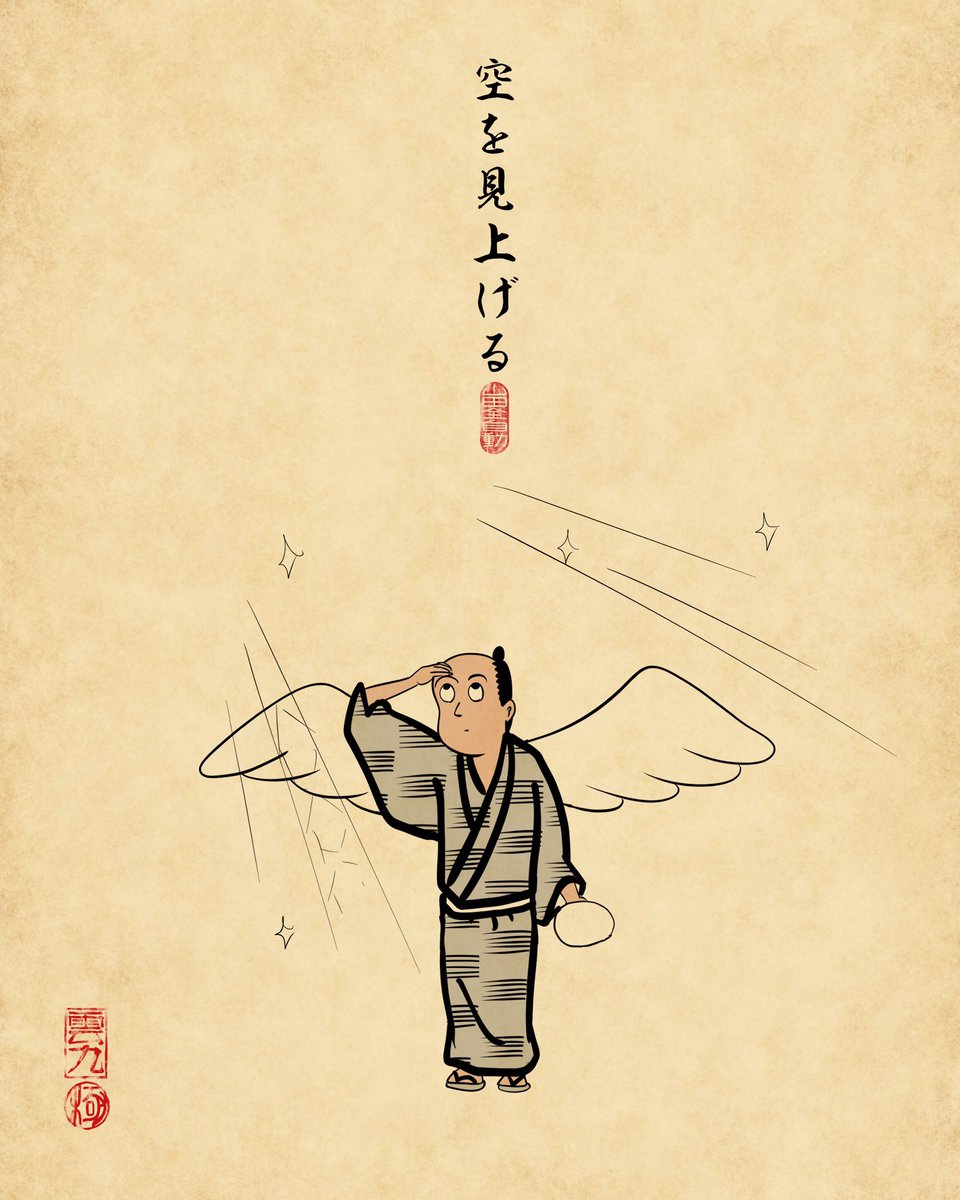 空を見上げる
雲九
極